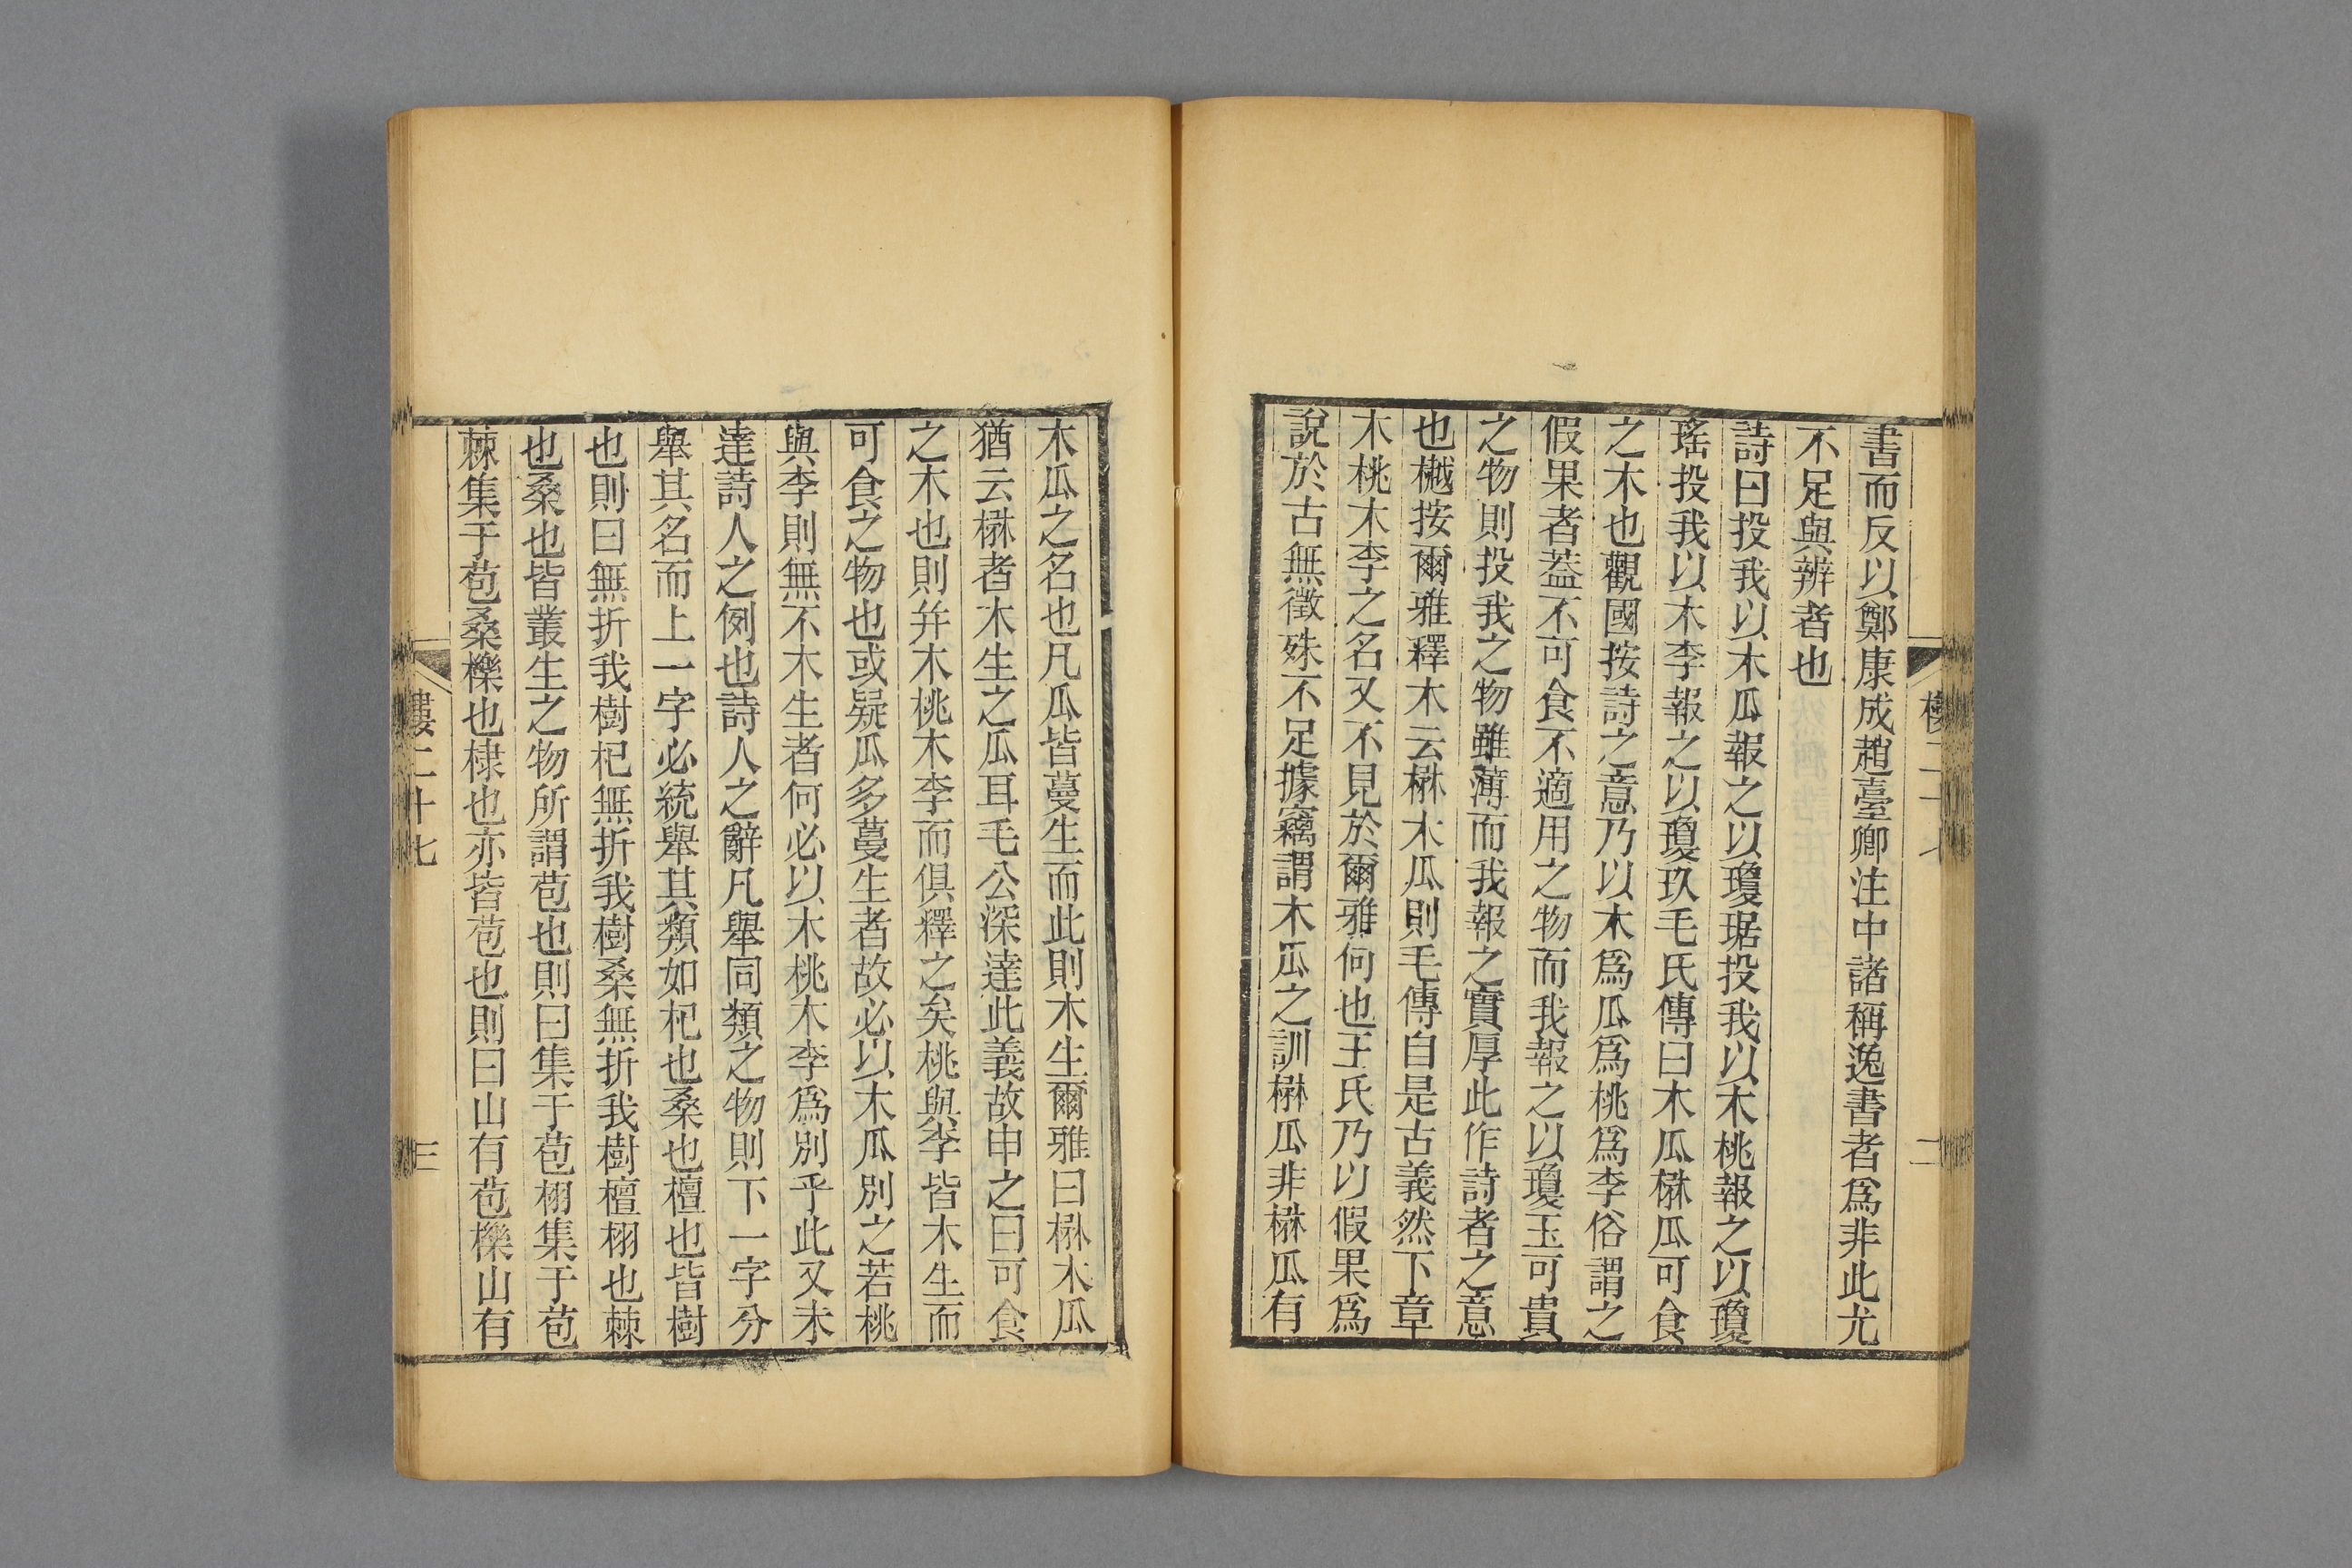 書而反以鄭康成趙臺卿注中諸稱逸書者爲非此尤
不足與辨者也
詩曰投我以木瓜報之以瓊琚投我以木桃報之以瓊
瑤投我以木李報之以瓊玖毛氏傳曰木瓜楙瓜可食
之木也觀國按詩之意乃以木爲瓜爲桃爲李俗謂之
假果者蓋不可食不適用之物而我報之以瓊玉可貴
之物則投我之物雖薄而我報之實厚此作詩者之意
也樾按爾雅釋木云楙木瓜則毛傳自是古義然下章
木桃木李之名又不見於爾雅何也王氏乃以假果爲
說於古無徵殊不足據竊謂木瓜之訓楙瓜非楙瓜有
木瓜之名也凡瓜皆蔓生而此則木生爾雅曰楙木瓜
猶云楙者木生之瓜耳毛公深達此義故申之曰可食
之木也則幷木桃木李而俱釋之矣桃與李皆木生而
可食之物也或疑瓜多蔓生者故必以木瓜別之若桃
與李則無不木生者何必以木桃木李爲別乎此又未
達詩人之例也詩人之辭凡舉同類之物則下一字分
舉其名而上一字必統舉其類如杞也桑也檀也皆樹
也則曰無折我樹杞無折我樹桑無折我樹檀栩也棘
也桑也皆叢生之物所謂苞也則曰集于苞栩集于苞
棘集于苞桑櫟也棣也亦皆苞也則曰山有苞櫟山有
樓二十七
三
二